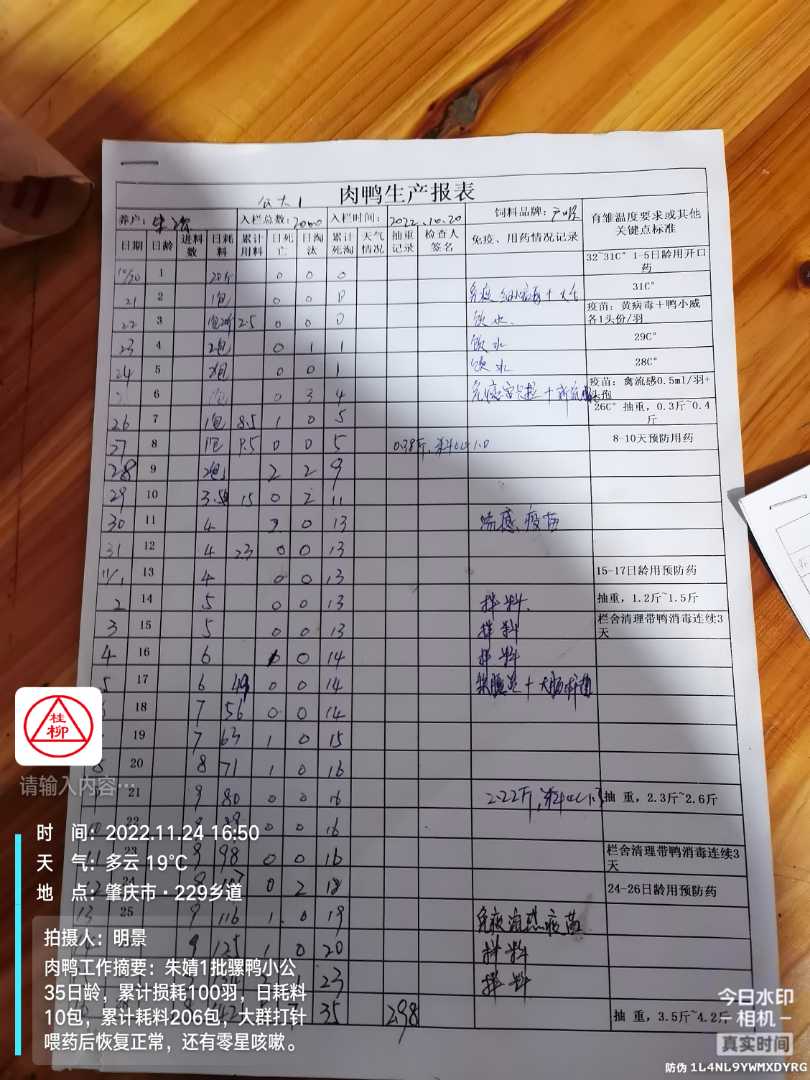 公大1
肉鸭生产报表
养户： 入栏总数：2000 入栏时间：2022.10.20 饲料品牌： 育雏温度要求或其他关键点标准
日期 日龄 进料数 日耗料 累计用料 日死亡 日淘汰 累计死淘 天气情况 抽重记录 检查人签名 免疫、用药情况记录
10/20 1 20斤 0 0 0 32~31C° 1-5日龄用开口药
21 2 1包 0 0 0 31C°
22 3 2.5 0 0 0 饮水. 疫苗：黄病毒+鸭小威各1头份/羽
23 4 2包 0 1 1 饮水 29C°
24 5 0 0 1 饮水 28C°
6 0 3 4 疫苗：禽流感0.5ml/羽+
26 7 8.5 1 0 5 26C° 抽重，0.3斤~0.4斤
27 8 9.5 0 0 5 0.38斤, 8-10天预防用药
28 9 2 2 9
29 10 15 0 2 11
30 11 4 2 0 13 流感疫苗
31 12 4 23 0 0 13
11/1 13 4 0 0 13 15-17日龄用预防药
2 14 5 0 0 13 拌料. 抽重，1.2斤~1.5斤
3 15 5 0 0 13 拌料 栏舍清理带鸭消毒连续3天
4 16 6 0 14 拌料
5 17 6 49 0 0 14 大肠杆菌
18 7 56 0 0 14
19 7 63 1 0 15
20 8 71 1 0 16
21 9 80 0 0 16 2.22斤, 抽 重，2.3斤~2.6斤
22 0 0 16
23 9 98 0 0 16 栏舍清理带鸭消毒连续3天
24 9 107 0 2 18 24-26日龄用预防药
13 25 9 116 1 0 19 免疫流感疫苗
9 125 1 0 20 拌料
23 拌料
35 2.98 抽 重，3.5斤~4.2斤
桂柳
请输入内容…
时 间：2022.11.24 16:50
天 气：多云 19℃
地 点：肇庆市·229乡道
拍摄人：明景
肉鸭工作摘要：朱婧1批骡鸭小公
35日龄，累计损耗100羽，日耗料
10包，累计耗料206包，大群打针
喂药后恢复正常，还有零星咳嗽。
今日水印
相机
真实时间
防伪 1L4NL9YWMXDYRC